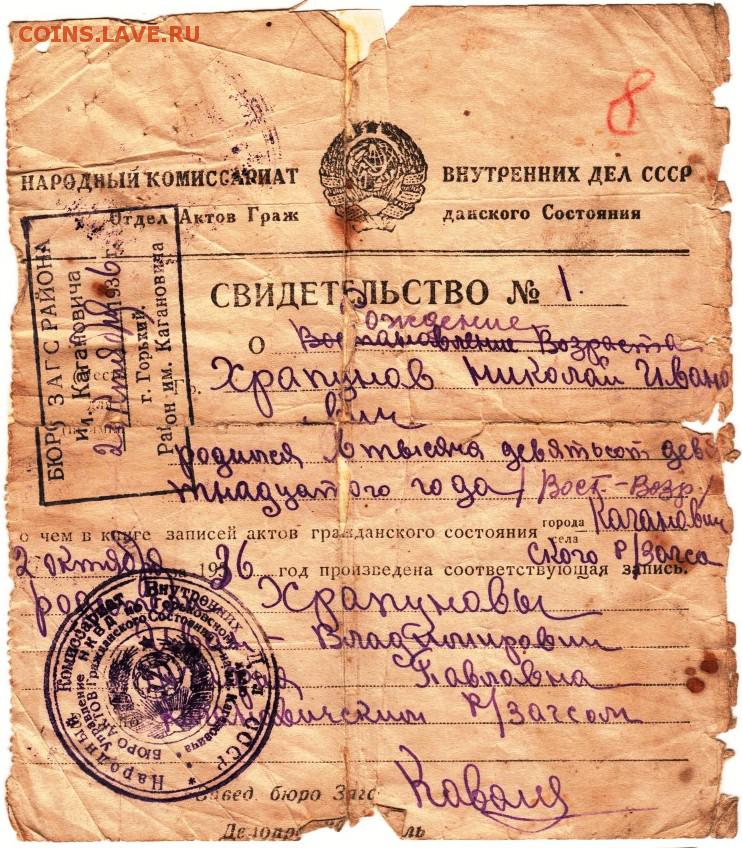 COINS.LAVE.RU
8
НАРОДНЫЙ КОМИССАРИАТ ВНУТРЕННИХ ДЕЛ СССР
Отдел Актов Граж данского Состояния
БЮРО ЗАГС РАЙОНА
им. Кагановича
23 октября 1936 г.
г. Горький.
Район им. Кагановича
СВИДЕТЕЛЬСТВО № 1.
рождение
О Востановление Возраста
Храпунов Николай Ивано
вич
родился в тысяча девятьсот девя
тнадцатого года /Вост.-Возр/
о чем в книге записей актов гражданского состояния города Каганович
села
2 октября за 1936 год произведена соответствующая запись. ского Р/Загса
Храпуновы
Владимирович
Павловна
Р/загсом
Народный Комиссариат Внутренних Дел СССР
Управление НКВД по Горьковскому краю
БЮРО АКТОВ Гражданского Состояния
Завед. бюро Загс